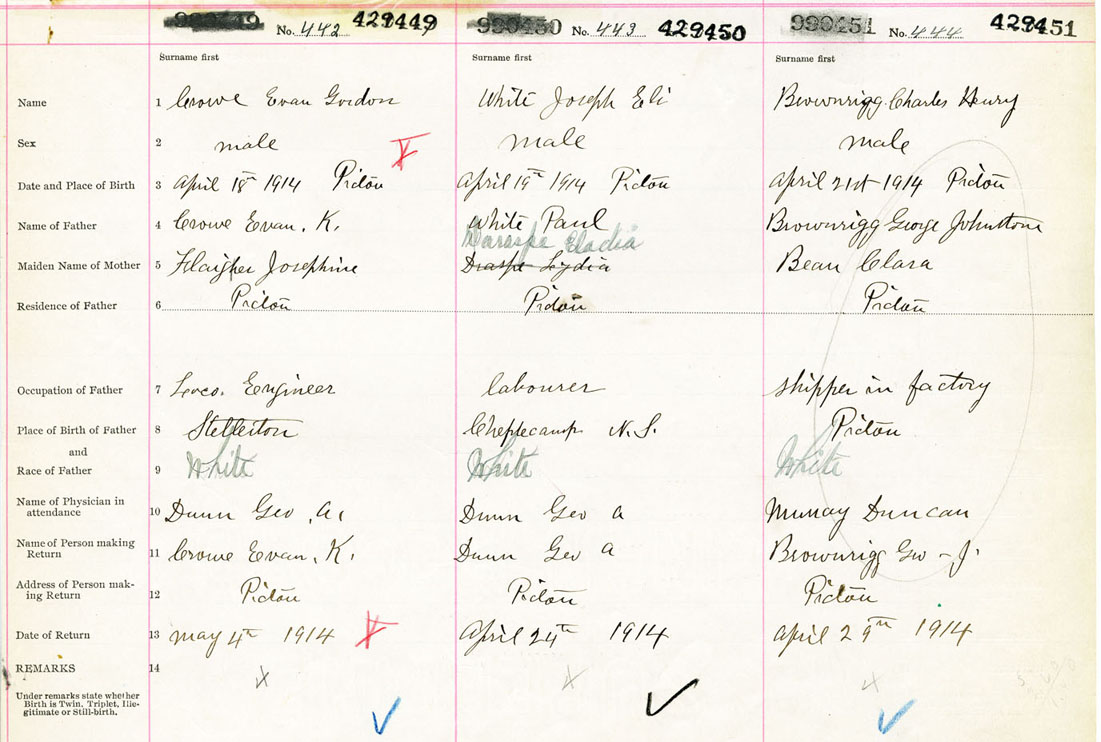 No. 442 429449 No. 443 429450 No. 444 429451
Surname first Surname first Surname first
Name 1 Crowe Evan Gordon White Joseph Eli Brownrigg Charles Henry
Sex 2 male male male
Date and Place of Birth 3 April 18th 1914 Pictou April 19th 1914 Pictou April 21st 1914 Pictou
Name of Father 4 Crowe Evan. K. White Paul Brownrigg George Johnstone
Eladia
Maiden Name of Mother 5 Josephine Lydia Bean Clara
Residence of Father 6 Pictou Pictou Pictou
Occupation of Father 7 Loco. Engineer labourer shipper in factory
Place of Birth of Father 8 Stellerton N.S. Pictou
and
Race of Father 9 White White White
Name of Physician in
attendance 10 Dunn Geo A. Dunn Geo A Murray Duncan
Name of Person making
Return 11 Crowe Evan. K. Dunn Geo A Brownrigg Geo - J.
Address of Person mak-
ing Return 12 Pictou Pictou Pictou
Date of Return 13 May 4th 1914 April 24th 1914 April 29th 1914
REMARKS 14 x x x
Under remarks state whether
Birth is Twin, Triplet, Ille-
gitimate or Still-birth.